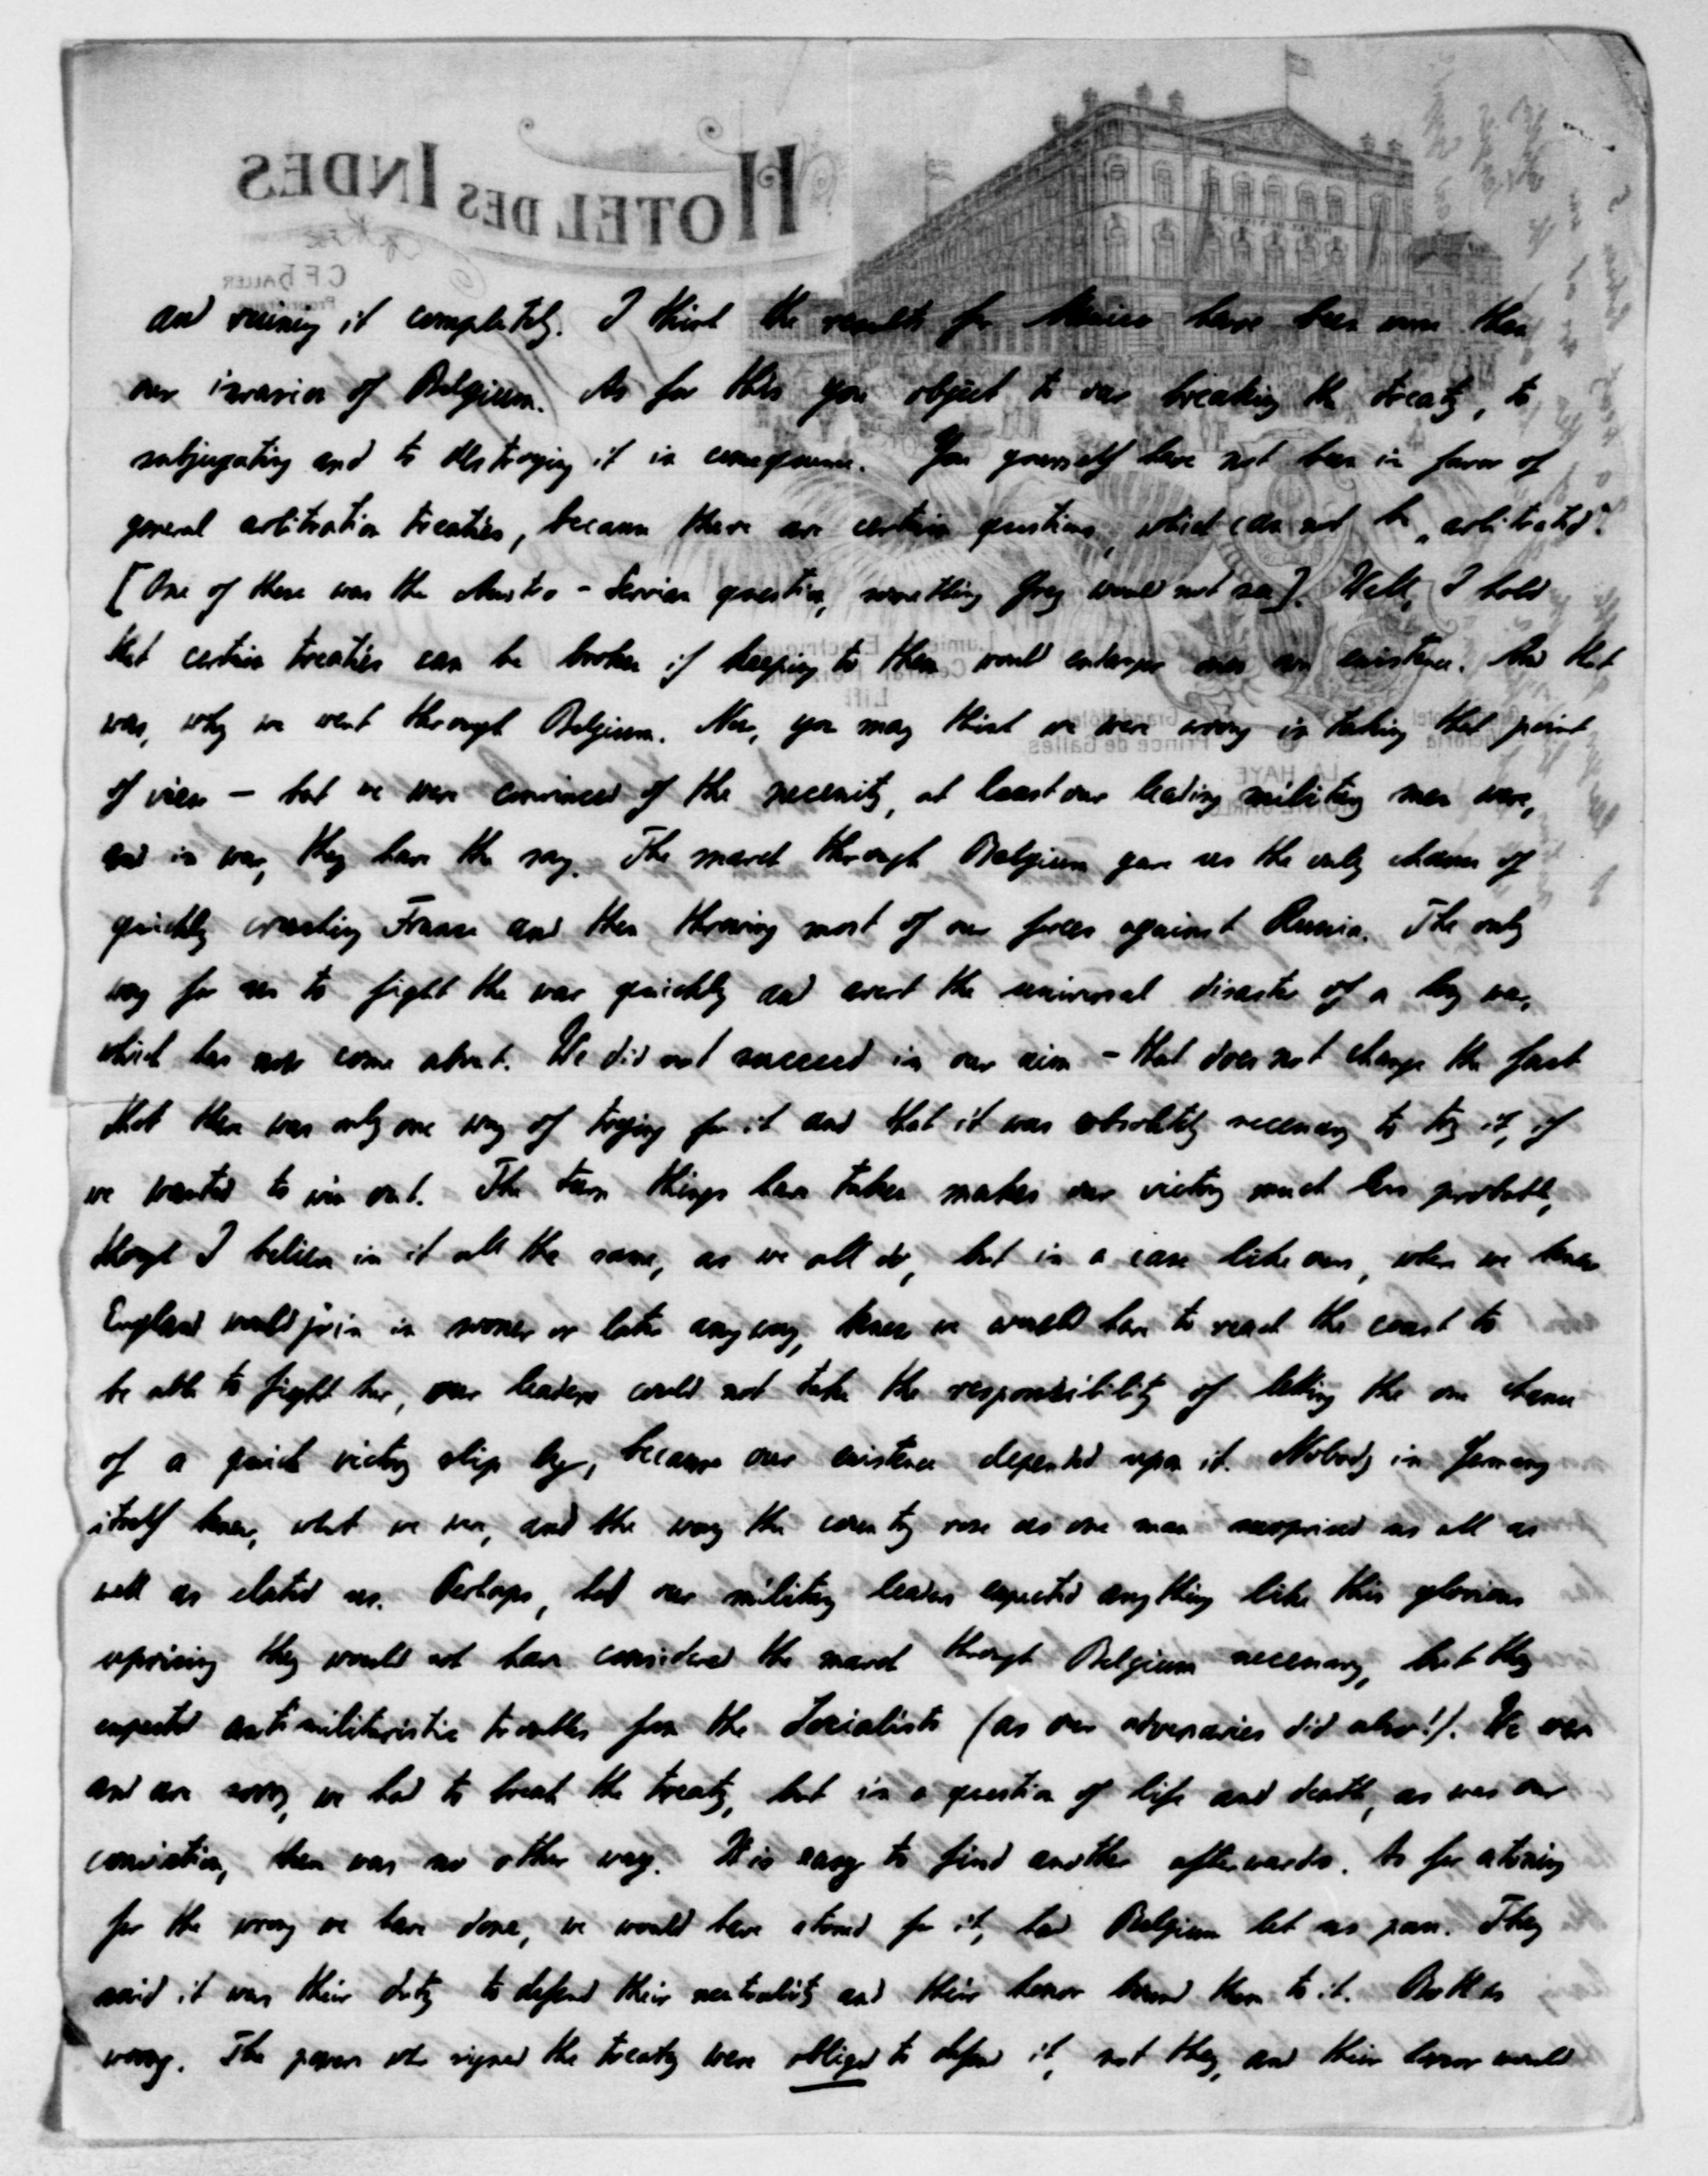 HOTEL DES INDES
C F HALLER
and ruining it completely. I think the results for Mexico have been worse than
our invasion of Belgium. As for this you object to our breaking the treaty, to
subjugating and to destroying it in consequence. You yourself have not been in favor of
general arbitration treaties, because there are certain questions, which can not be „arbitrated".
[One of these was the Austro-Servian question, something Grey would not see]. Well, I hold
that certain treaties can be broken if keeping to them would endanger ones own existence. And that
was, why we went through Belgium. Now, you may think we were wrong in taking that point
of view – but we were convinced of the necessity, at least our leading military men were,
and in war, they have the say. The march through Belgium gave us the only chance of
quickly crushing France and then throwing most of our forces against Russia. The only
way for us to fight the war quickly and avert the universal disaster of a long war,
which has now come about. We did not succeed in our aim – that does not change the fact
that there was only one way of trying for it and that it was absolutely necessary to try it, if
we wanted to win out. The turn things have taken makes our victory much less probable,
though I believe in it all the same, as we all do, but in a case like ours, when we knew
England would join in sooner or later anyway, knew we would have to reach the coast to
be able to fight her, our leaders could not take the responsibility of letting the one chance
of a quick victory slip by, because our existence depended upon it. Nobody in Germany
itself knew, what we were, and the way the country rose as one man surprised us all as
well as elated us. Perhaps, had our military leaders expected anything like this glorious
uprising they would not have considered the march through Belgium necessary, but they
expected antimilitaristic troubles from the Socialists (as our adversaries did also!). We were
and are sorry, we had to break the treaty, but in a question of life and death, as was our
conviction, there was no other way. It is easy to find another afterwards. As for atoning
for the wrong we have done, we would have atoned for it, had Belgium let us pass. They
said it was their duty to defend their neutrality and their honor bound them to it. Both is
wrong. The powers who signed the treaty were obliged to defend it, not they, and their honor would